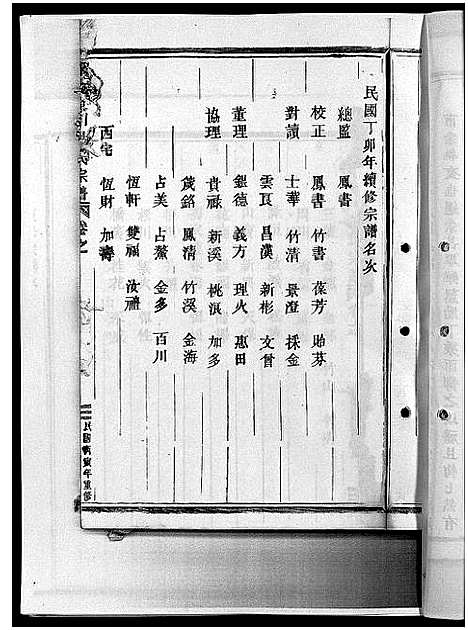 民國丁卯年續修宗譜名次
總監 鳳書
校正 鳳書 竹書 葆芳 貽芬
對讀 士華 竹清 景澄 採金
雲瓦 昌漢 新彬 文曾
董理 鋘德 義方 理火 惠田
協理 貴祿 新溪 桃浜 加多
箴銘 鳳清 竹溪 金海
占美 占鰲 金多 百川
恆軒 雙福 汝禮
西宅 恆財 加壽
氏宗譜 卷之
民國 寅年重修